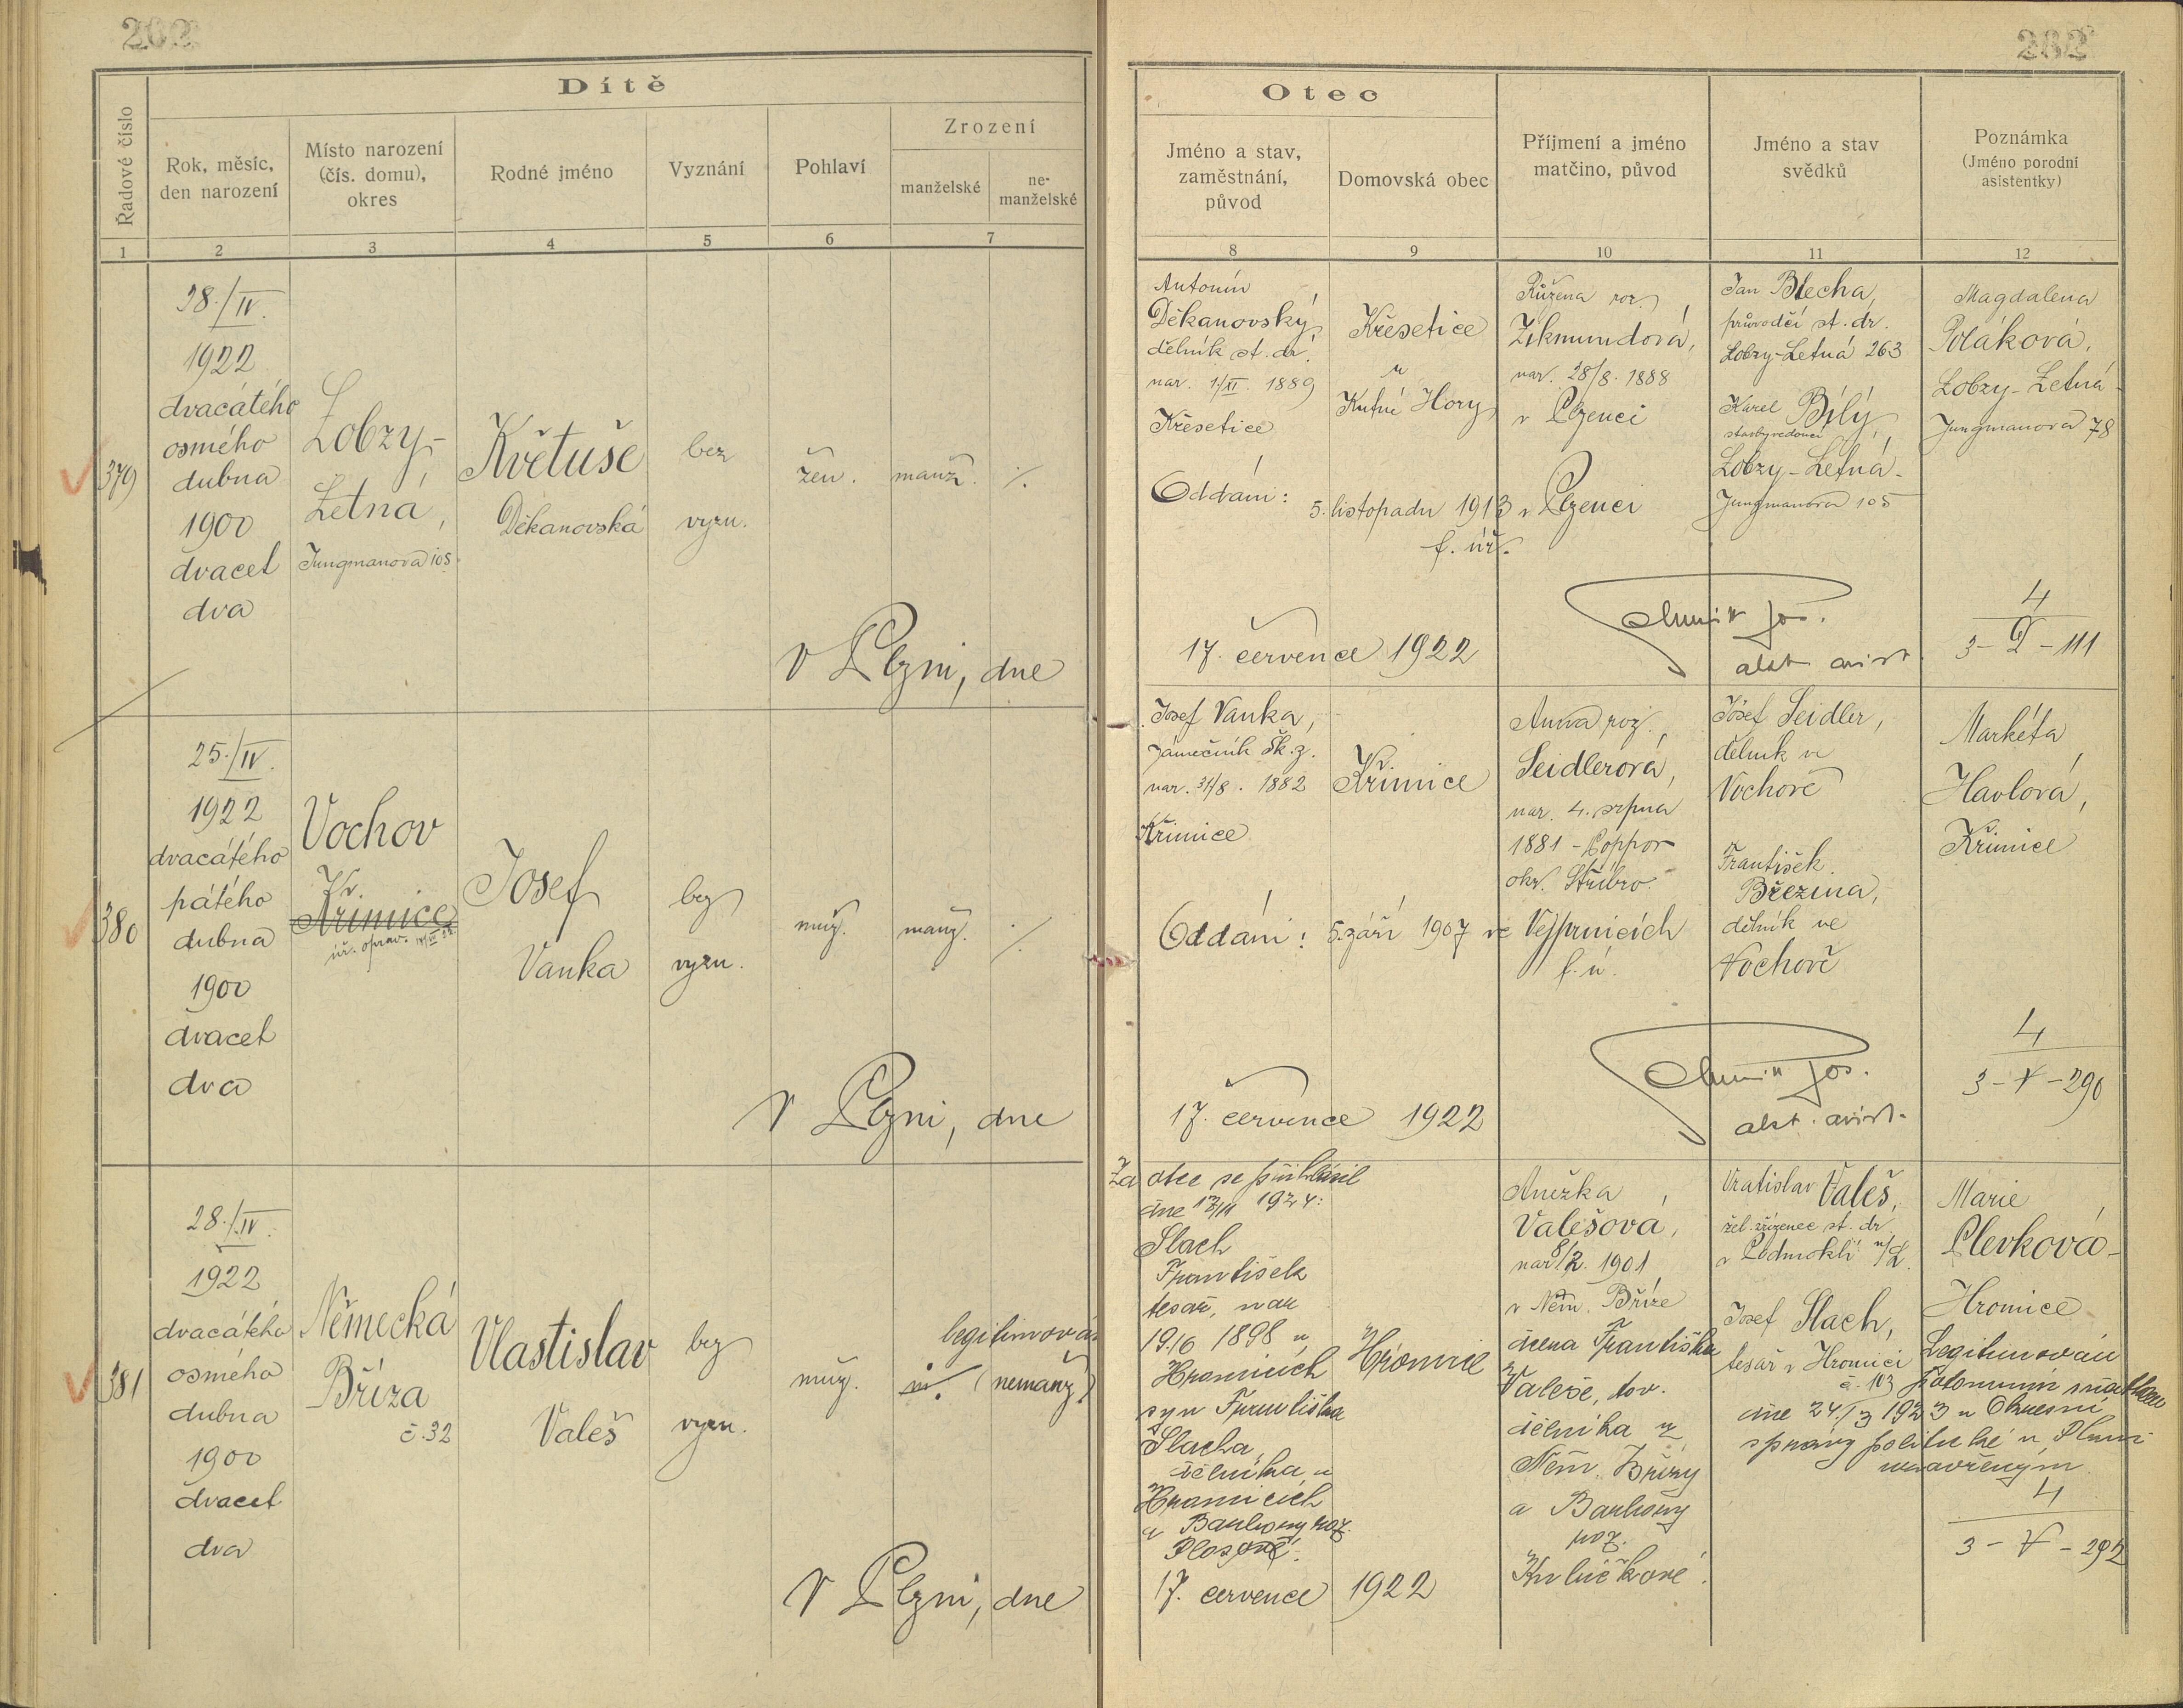 202
282
Dítě
Řadové číslo
Rok, měsíc,
den narození
Místo narození
(čís. domu),
okres
Rodné jméno
Vyznání
Pohlaví
Zrození
manželské
ne-
manželské
1
2
3
4
5
6
7
Otec
Jméno a stav,
zaměstnání,
původ
Domovská obec
Příjmení a jméno
matčino, původ
Jméno a stav
svědků
Poznámka
(Jméno porodní
asistentky)
8
9
10
11
12
379
28./IV.
1922
dvacátého
osmého
dubna
1900
dvacet
dva
Lobzy-
Letná,
Jungmanova 105.
Květuše
Děkanovská
bez
vyzn.
žen.
manž.
./.
V Plzni, dne
Antonín
Děkanovský,
dělník st. dr.
nar. 1/II. 1889
Křesetice
Křesetice
u
Kutné Hory
Růžena roz.
Zikmundová,
nar. 28/8. 1888
v Plzenci
Jan Blecha,
průvodčí st. dr.
Lobzy-Letná 263
Karel Bílý,
stavbyvedoucí
Lobzy-Letná-
Jungmanova 105
Magdalena
Poláková,
Lobzy-Letná-
Jungmanova 78
Oddáni: 5. listopadu 1913 v Plzenci
f. úř.
17. července 1922
Jos.
4
3- -111
380
25./IV.
1922
dvacátého
pátého
dubna
1900
dvacet
dva
Vochov
Křimice
úř. oprav.
Josef
Vanka
bez
vyzn.
muž.
manž.
./.
V Plzni, dne
Josef Vanka,
zámečník Šk. z.
nar. 31/8. 1882
Křimice
Křimice
Anna roz.
Seidlerová,
nar. 4. srpna
1881 -
okr. Stříbro.
Josef Seidler,
dělník ve
Vochově
František
Březina,
dělník ve
Vochově
Markéta
Havlová,
Křimice
Oddáni: 5. září 1907 ve Vejprnicích
f. ú.
17. července 1922
Jos.
4
3-V-290
381
28./IV.
1922
dvacátého
osmého
dubna
1900
dvacet
dva
Německá
Bříza
č. 32
Vlastislav
Valeš
bez
vyzn.
muž.
legitimován
(nemanž.)
V Plzni, dne
Za otce se přihlásil
dne 1924:
Šlach
František
tesař, nar.
1898 v
Hromicích
syn Františka
Šlacha,
dělníka v
Hromicích
a Barbory roz.
17. července 1922
Hromice
Anežka
Valešová,
nar. 8/2. 1901
v Něm. Bříze
dcera Františka
Valeše, tov.
dělníka z
Něm. Břízy
a Barbory
roz.
Kuličkové.
Vratislav Valeš,
žel. zřízenec st. dr.
v Podmoklí n/L.
Josef Šlach,
tesař v Hromici
č. 103
Marie
Plevková-
Hromice
Legitimován
potomním sňatkem
dne 24./3 1923 u Okresní
správy politické v Plzni
uzavřeným
4
3-V-292